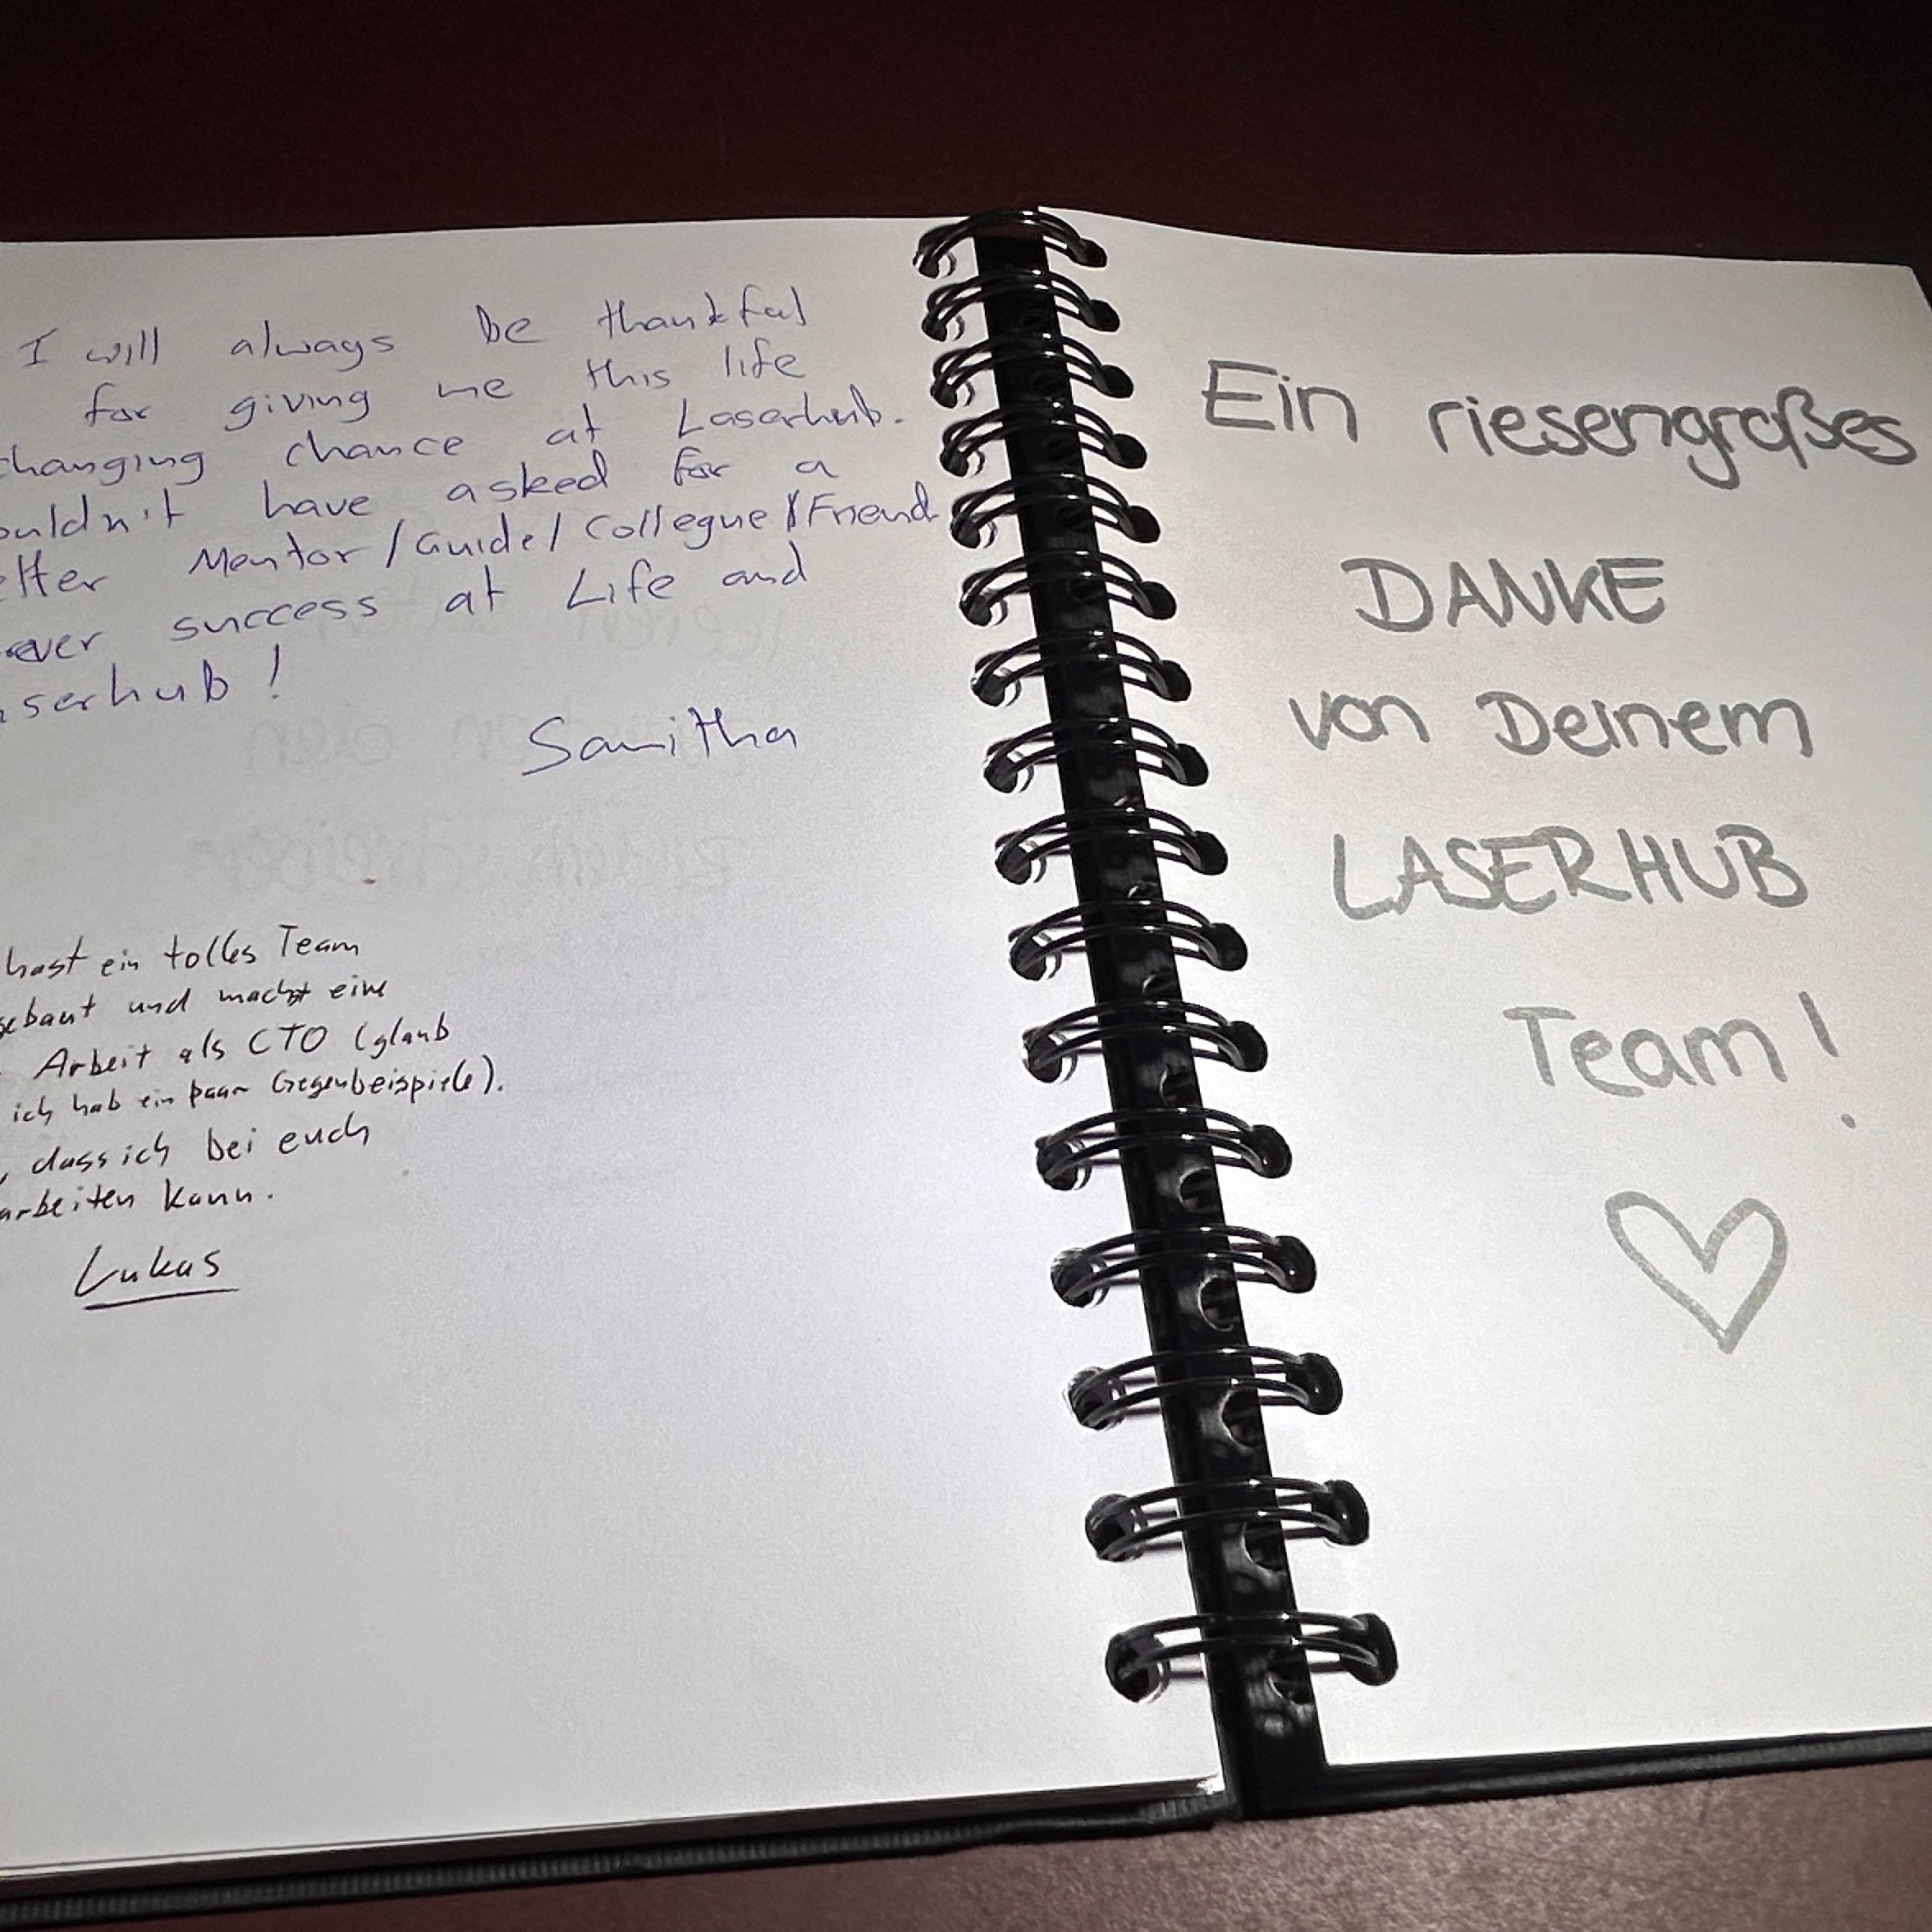 I will always be thankful
for giving me this life
changing chance at Laserhub.
ouldn't have asked for a
etter Mentor/Guide/Collegue/Friend
ever success at Life and
serhub!
Samitha
hast ein tolles Team
gebaut und machst eine
Arbeit als CTO (glaub
ich hab ein paar Gegenbeispiele).
, dass ich bei euch
arbeiten kann.
Lukas
Ein riesengroßes
DANKE
von Deinem
LASERHUB
Team!